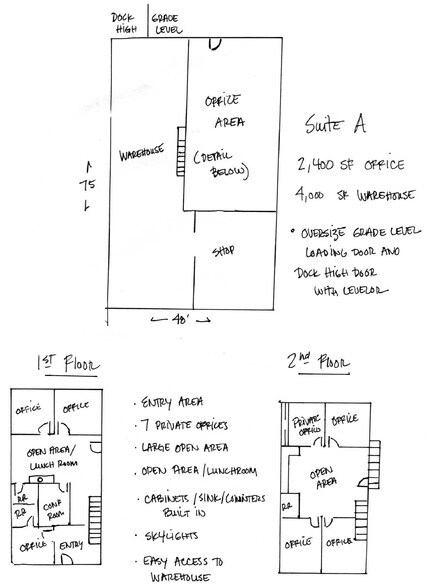 DOCK HIGH
GRADE LEVEL
OFFICE
AREA
(DETAIL
BELOW)
WAREHOUSE
75
SHOP
48'
SUITE A
2,400 SF OFFICE
4,000 SF WAREHOUSE
• OVERSIZE GRADE LEVEL
LOADING DOOR AND
DOCK HIGH DOOR
WITH LEVELOR
1ST FLOOR
OFFICE
OFFICE
OPEN AREA/
LUNCH ROOM
RR
RR
CONF
ROOM
OFFICE
ENTRY
· ENTRY AREA
· 7 PRIVATE OFFICES
· LARGE OPEN AREA
· OPEN AREA/LUNCHROOM
· CABINETS/SINK/COUNTERS
BUILT IN
· SKYLIGHTS
· EASY ACCESS TO
WAREHOUSE
2nd FLOOR
PRIVATE
OFFICE
OFFICE
OPEN
AREA
RR
OFFICE
OFFICE